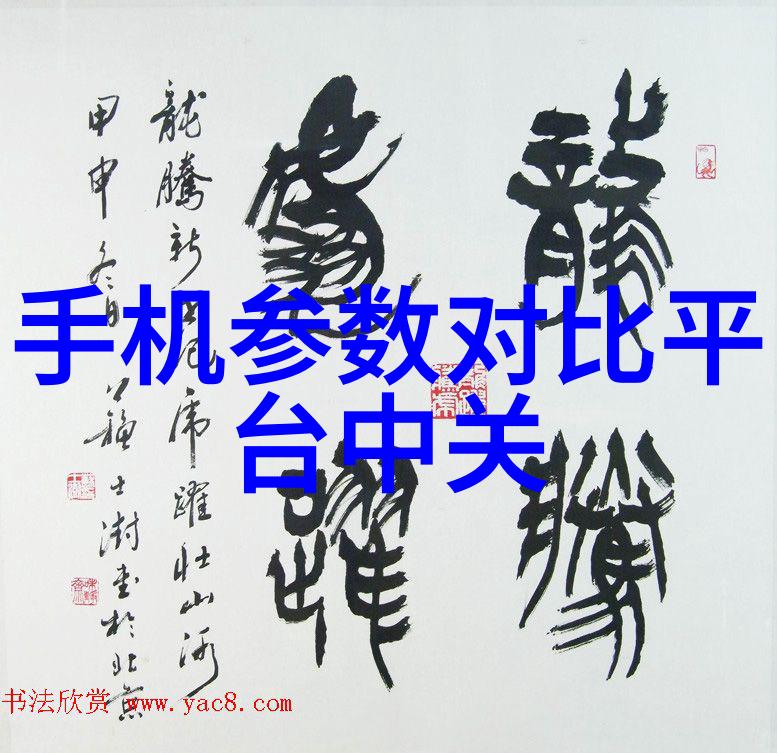 手机参数对比平
台中关
龍騰
虎躍
龍騰新 虎躍壯山河
甲申冬日 蘇士澍書於北京
书法欣赏 www.yac8.com